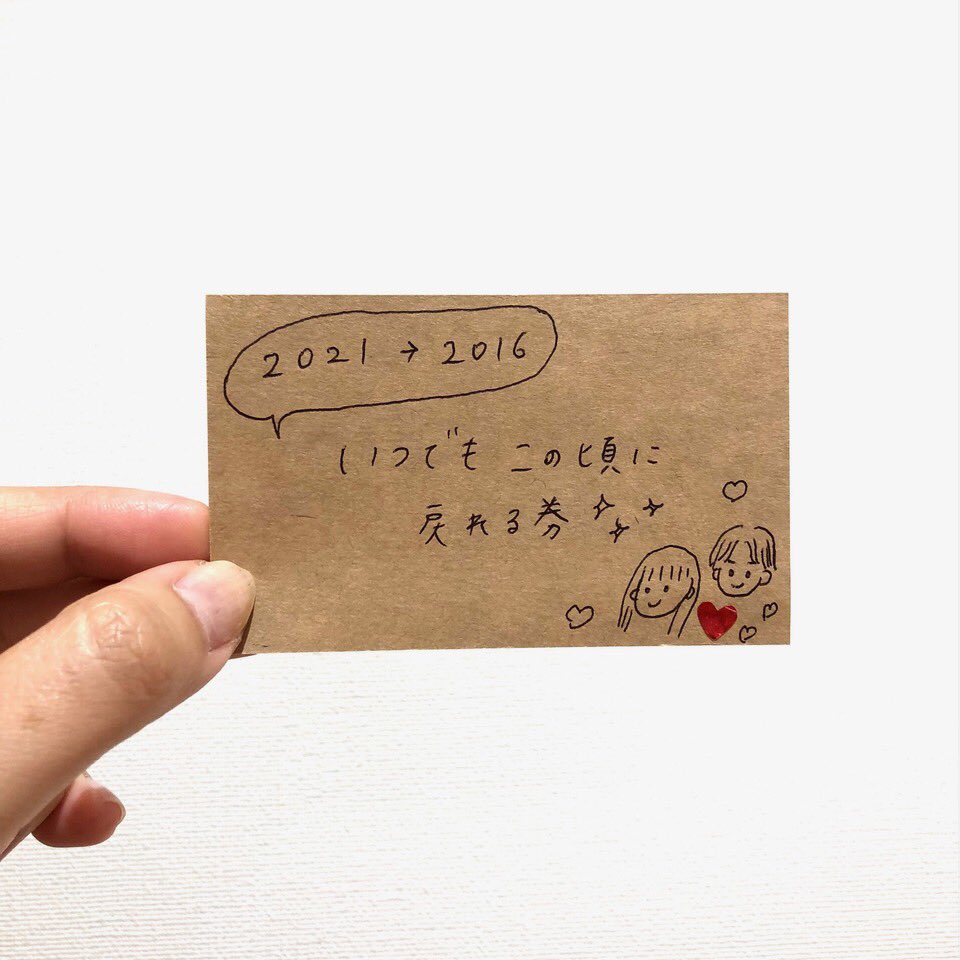 2021 → 2016
いつでも この頃に
戻れる券